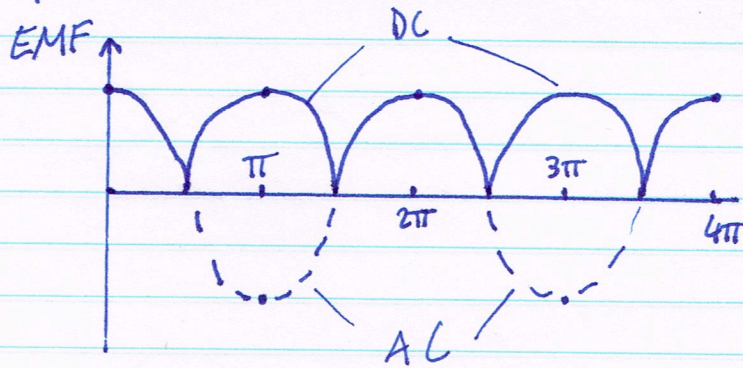 EMF
DC
π
3π
2π
4π
AC